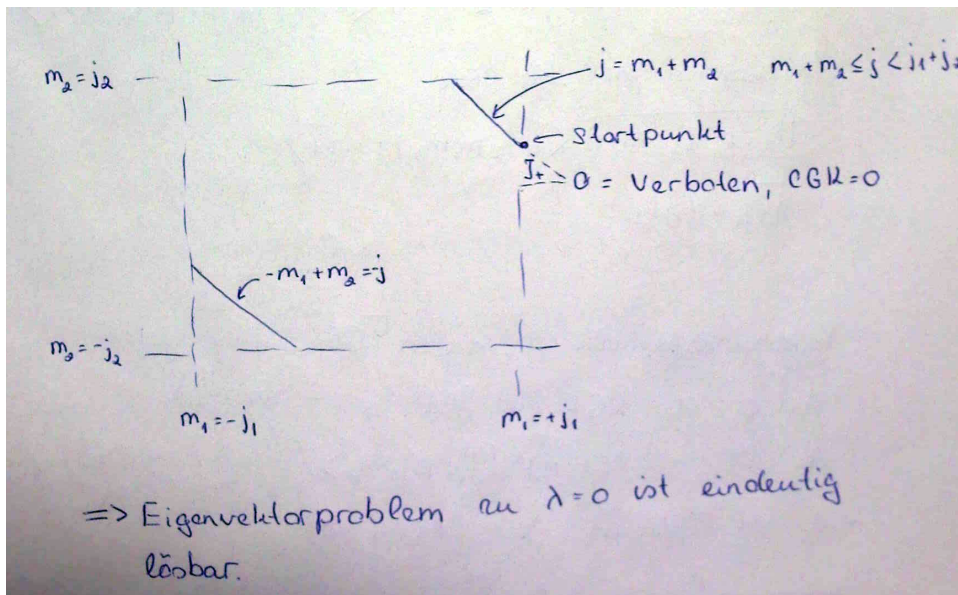 m₂=j₂
j=m₁+m₂
m₁+m₂≤j<j₁+j₂
Startpunkt
J₊
0 = Verboten, CGK=0
-m₁+m₂=-j
m₂=-j₂
m₁=-j₁
m₁=+j₁
=> Eigenvektorproblem zu λ=0 ist eindeutig
lösbar.